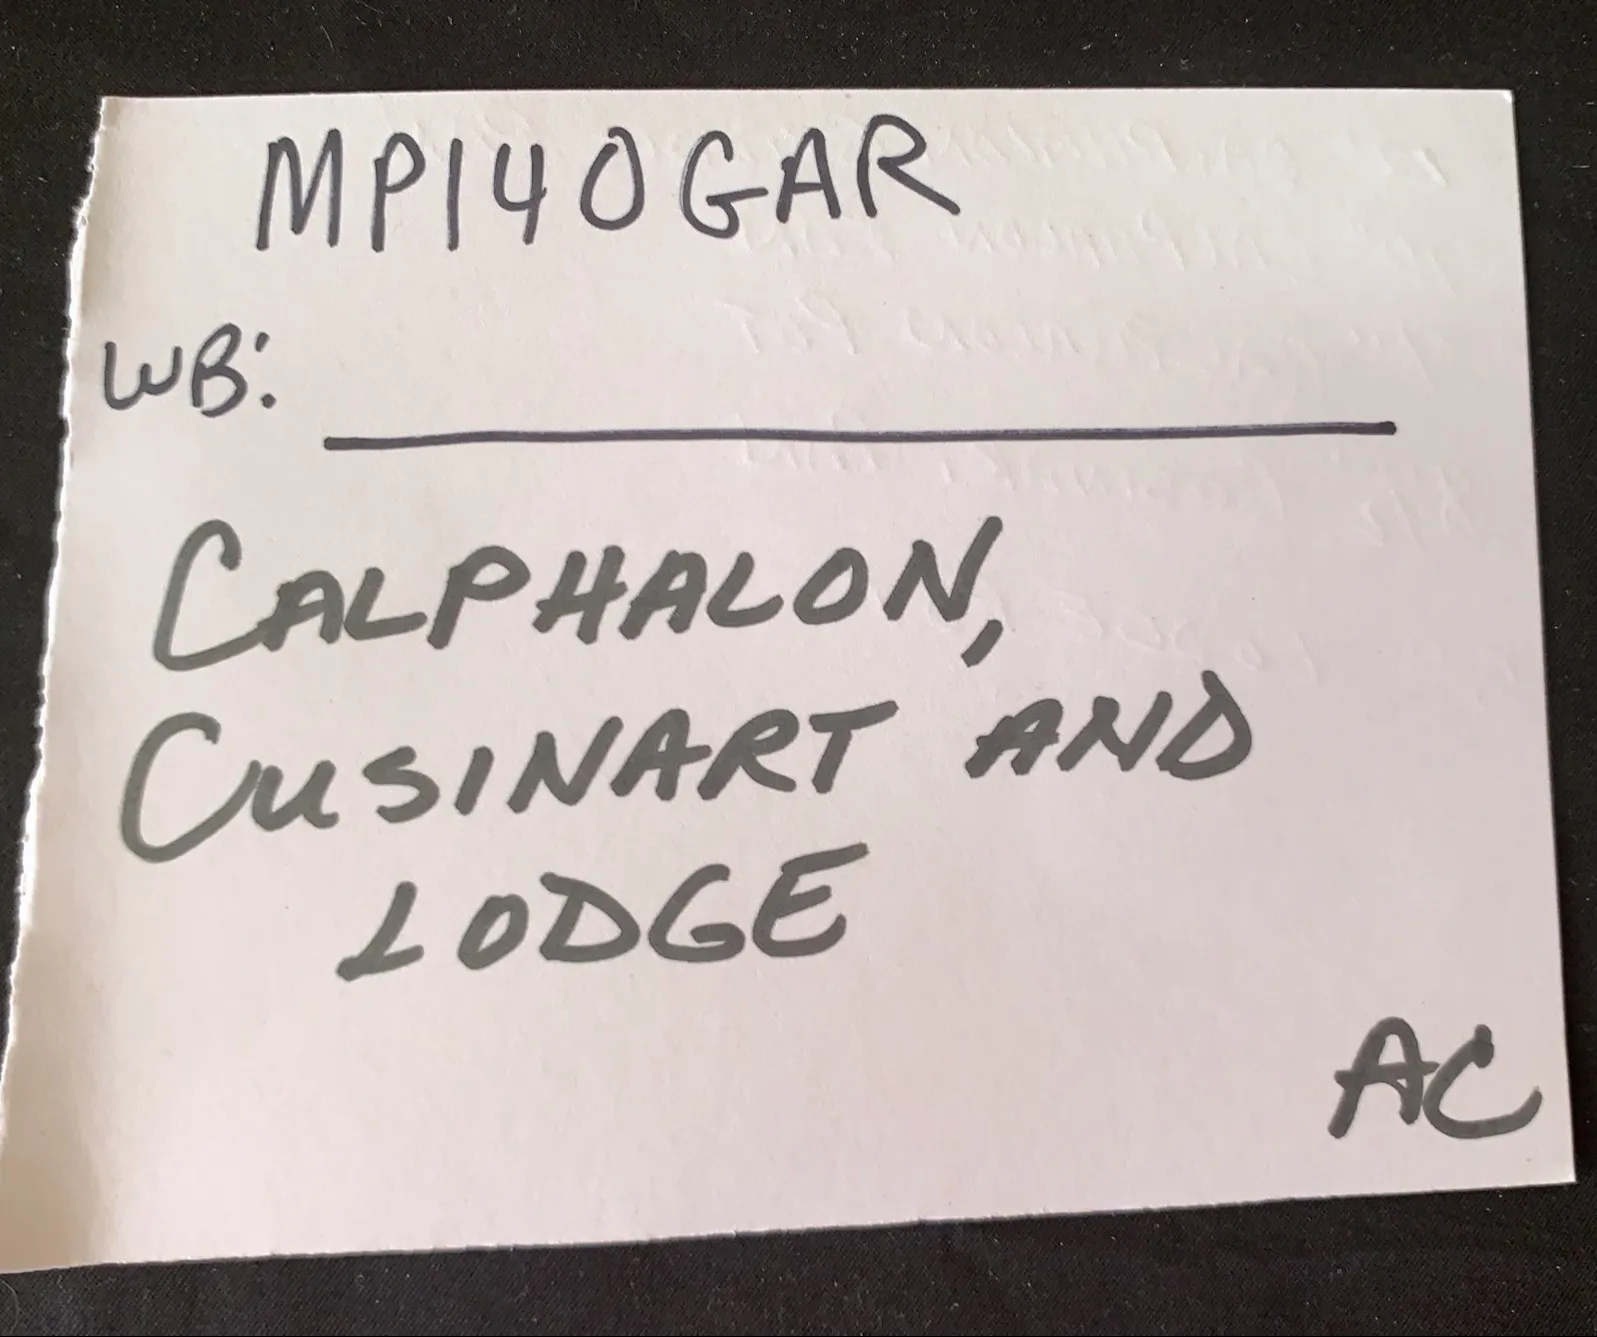 MP140GAR
WB:
CALPHALON,
CUSINART AND
LODGE
AC